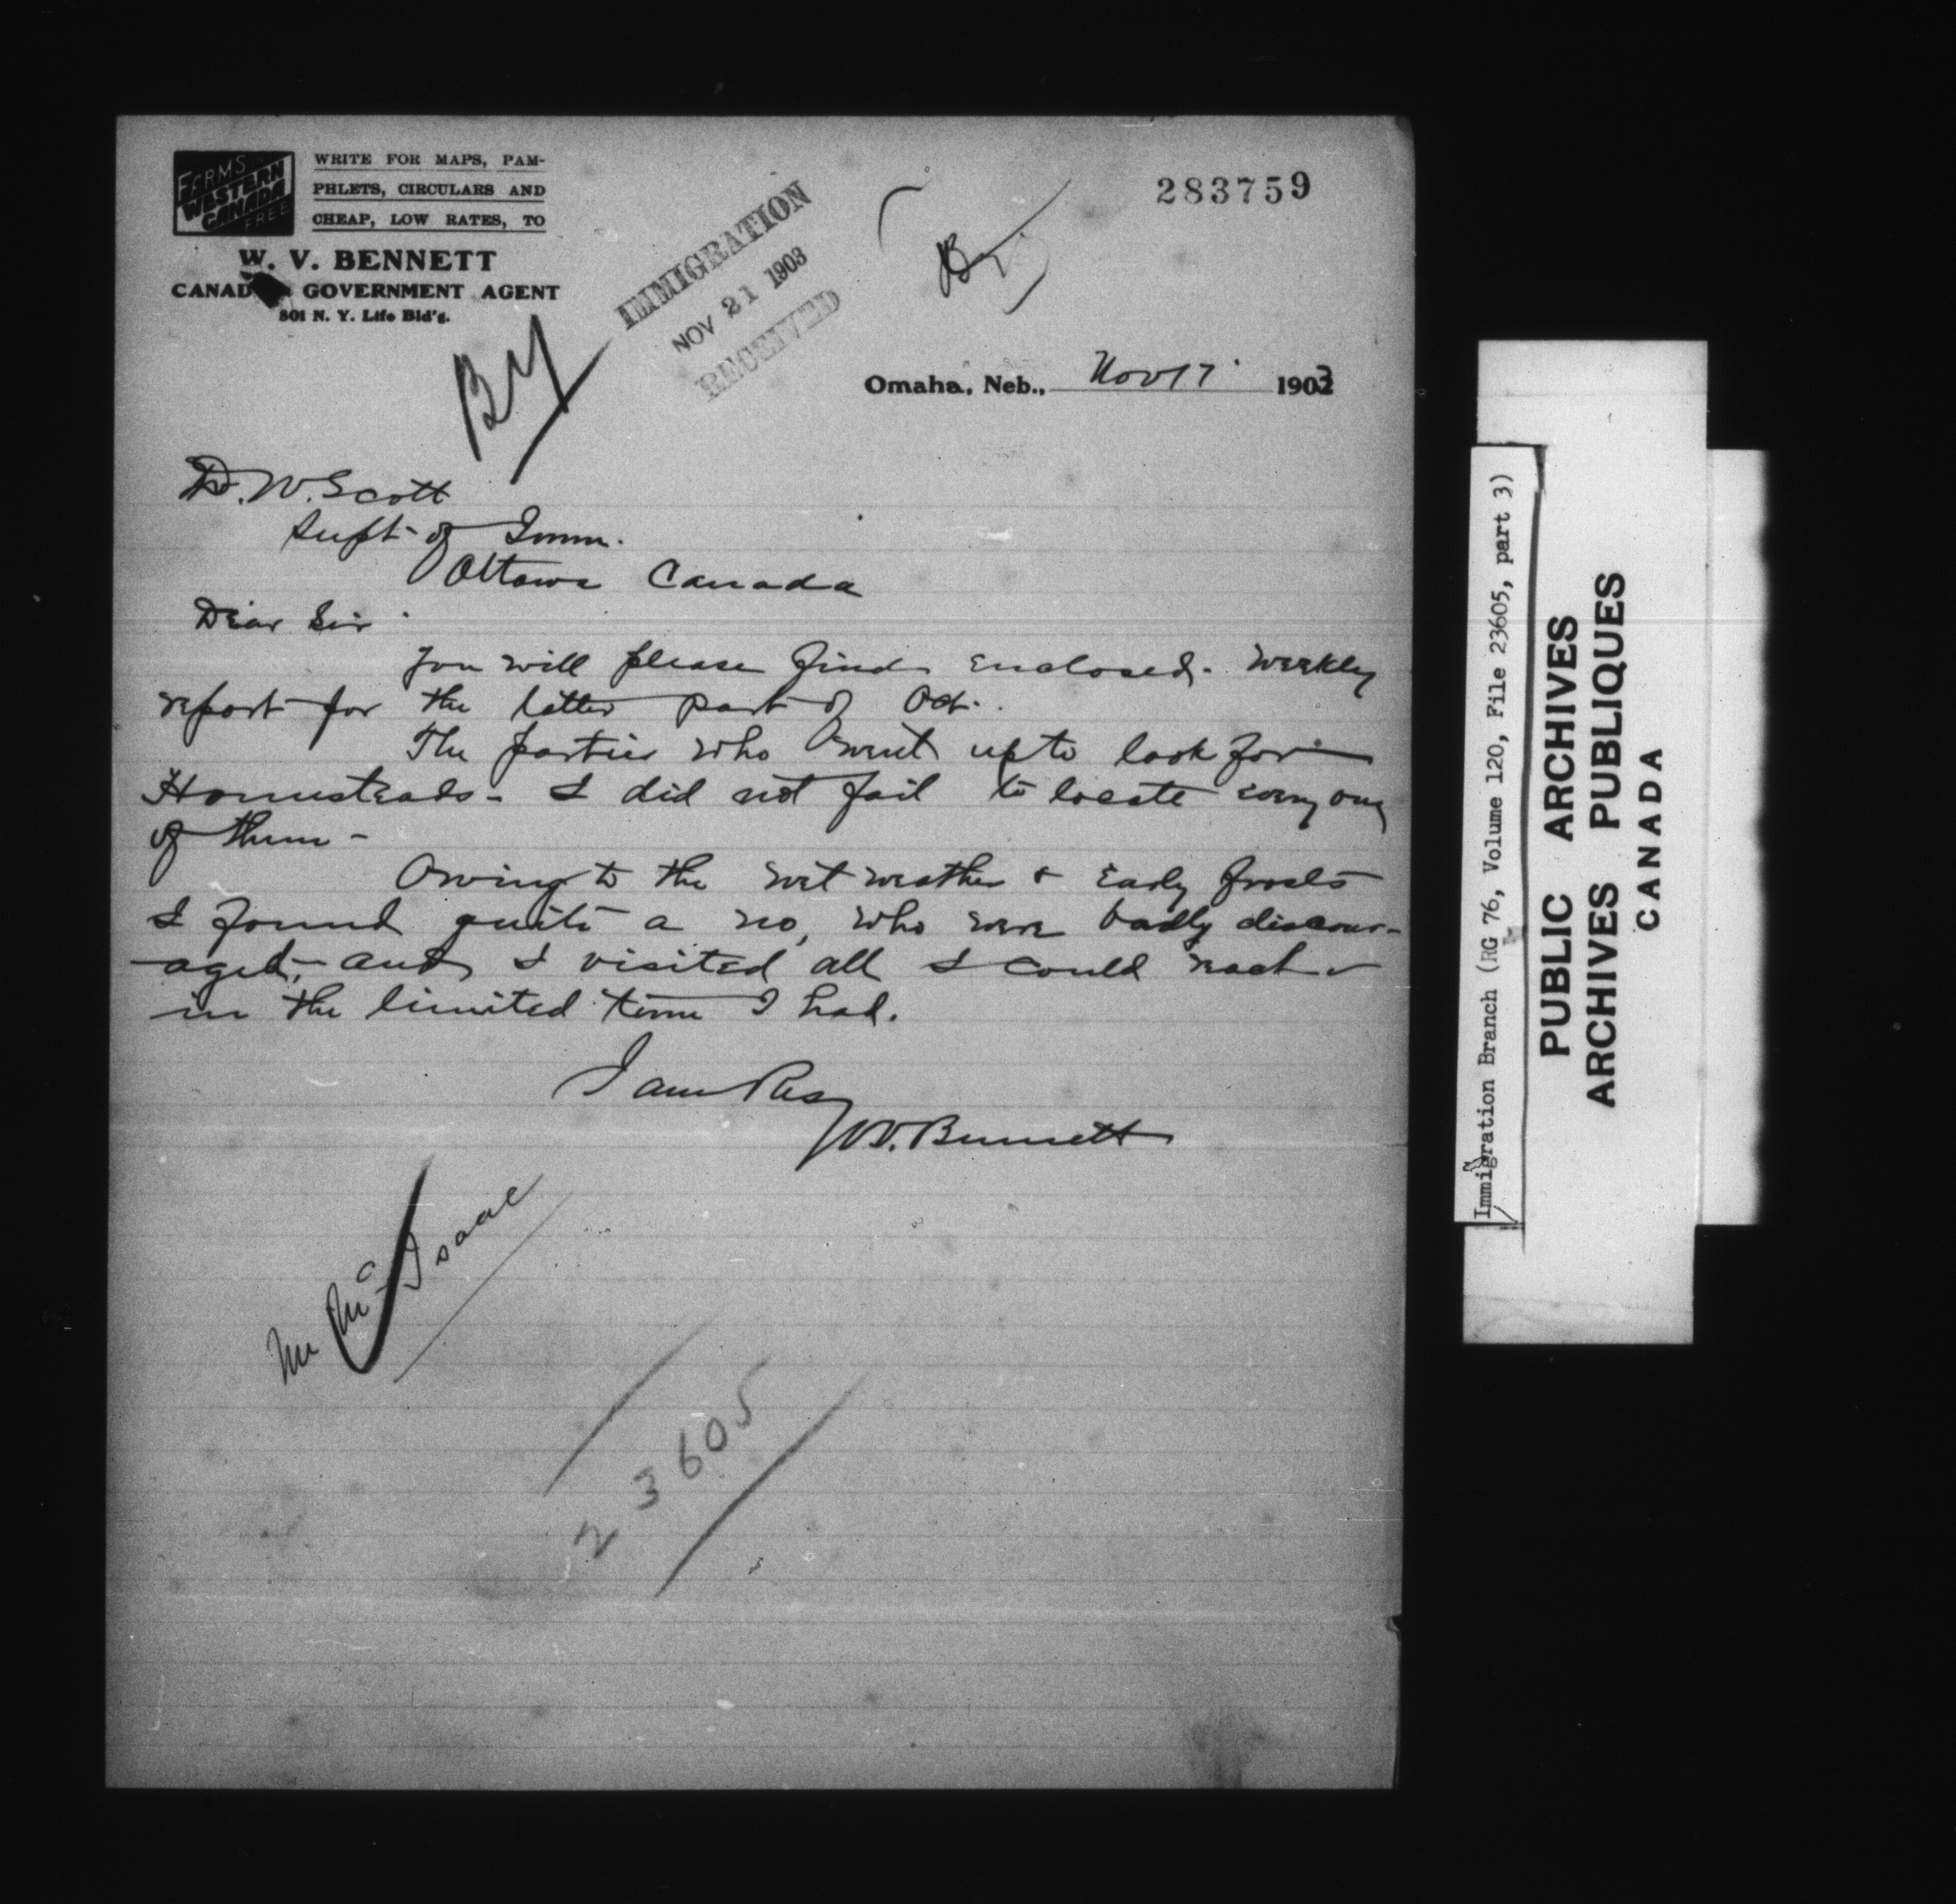 FARMS IN
WESTERN
CANADA
FREE
WRITE FOR MAPS, PAM-
PHLETS, CIRCULARS AND
CHEAP, LOW RATES, TO
W. V. BENNETT
CANAD GOVERNMENT AGENT
801 N. Y. Life Bld'g.
IMMIGRATION
NOV 21 1903
RECEIVED
283759
By
Omaha, Neb., Nov 17 1903
D. W. Scott
Supt of Imm.
Ottawa Canada
Dear Sir
You will please find enclosed. Weekly
report for the latter part of Oct.
The parties who went up to look for
Homesteads - I did not fail to locate every one
of them -
Owing to the wet weather & Early frosts
I found quite a no, who were badly discour-
aged, and I visited all I could reach
in the limited time I had.
I am Resy
W.V. Bennett
Mr McIsaac
23605
Immigration Branch (RG 76, Volume 120, File 23605, part 3)
PUBLIC ARCHIVES
ARCHIVES PUBLIQUES
CANADA